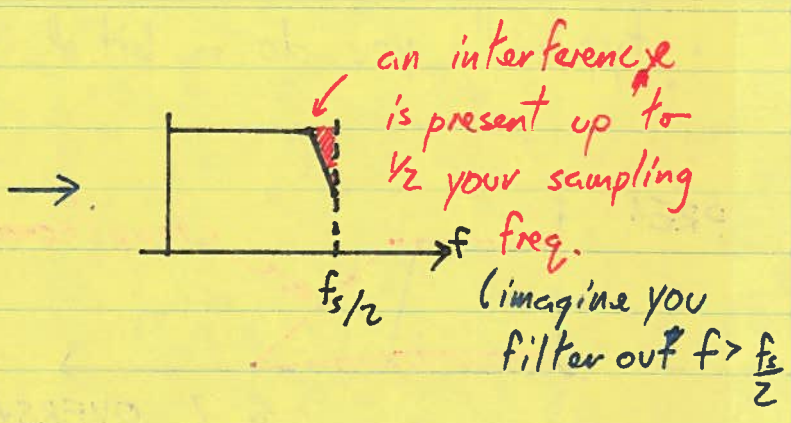 an interference
is present up to
1/2 your sampling
freq.
f
fs/2
(imagine you
filter out f > fs/2